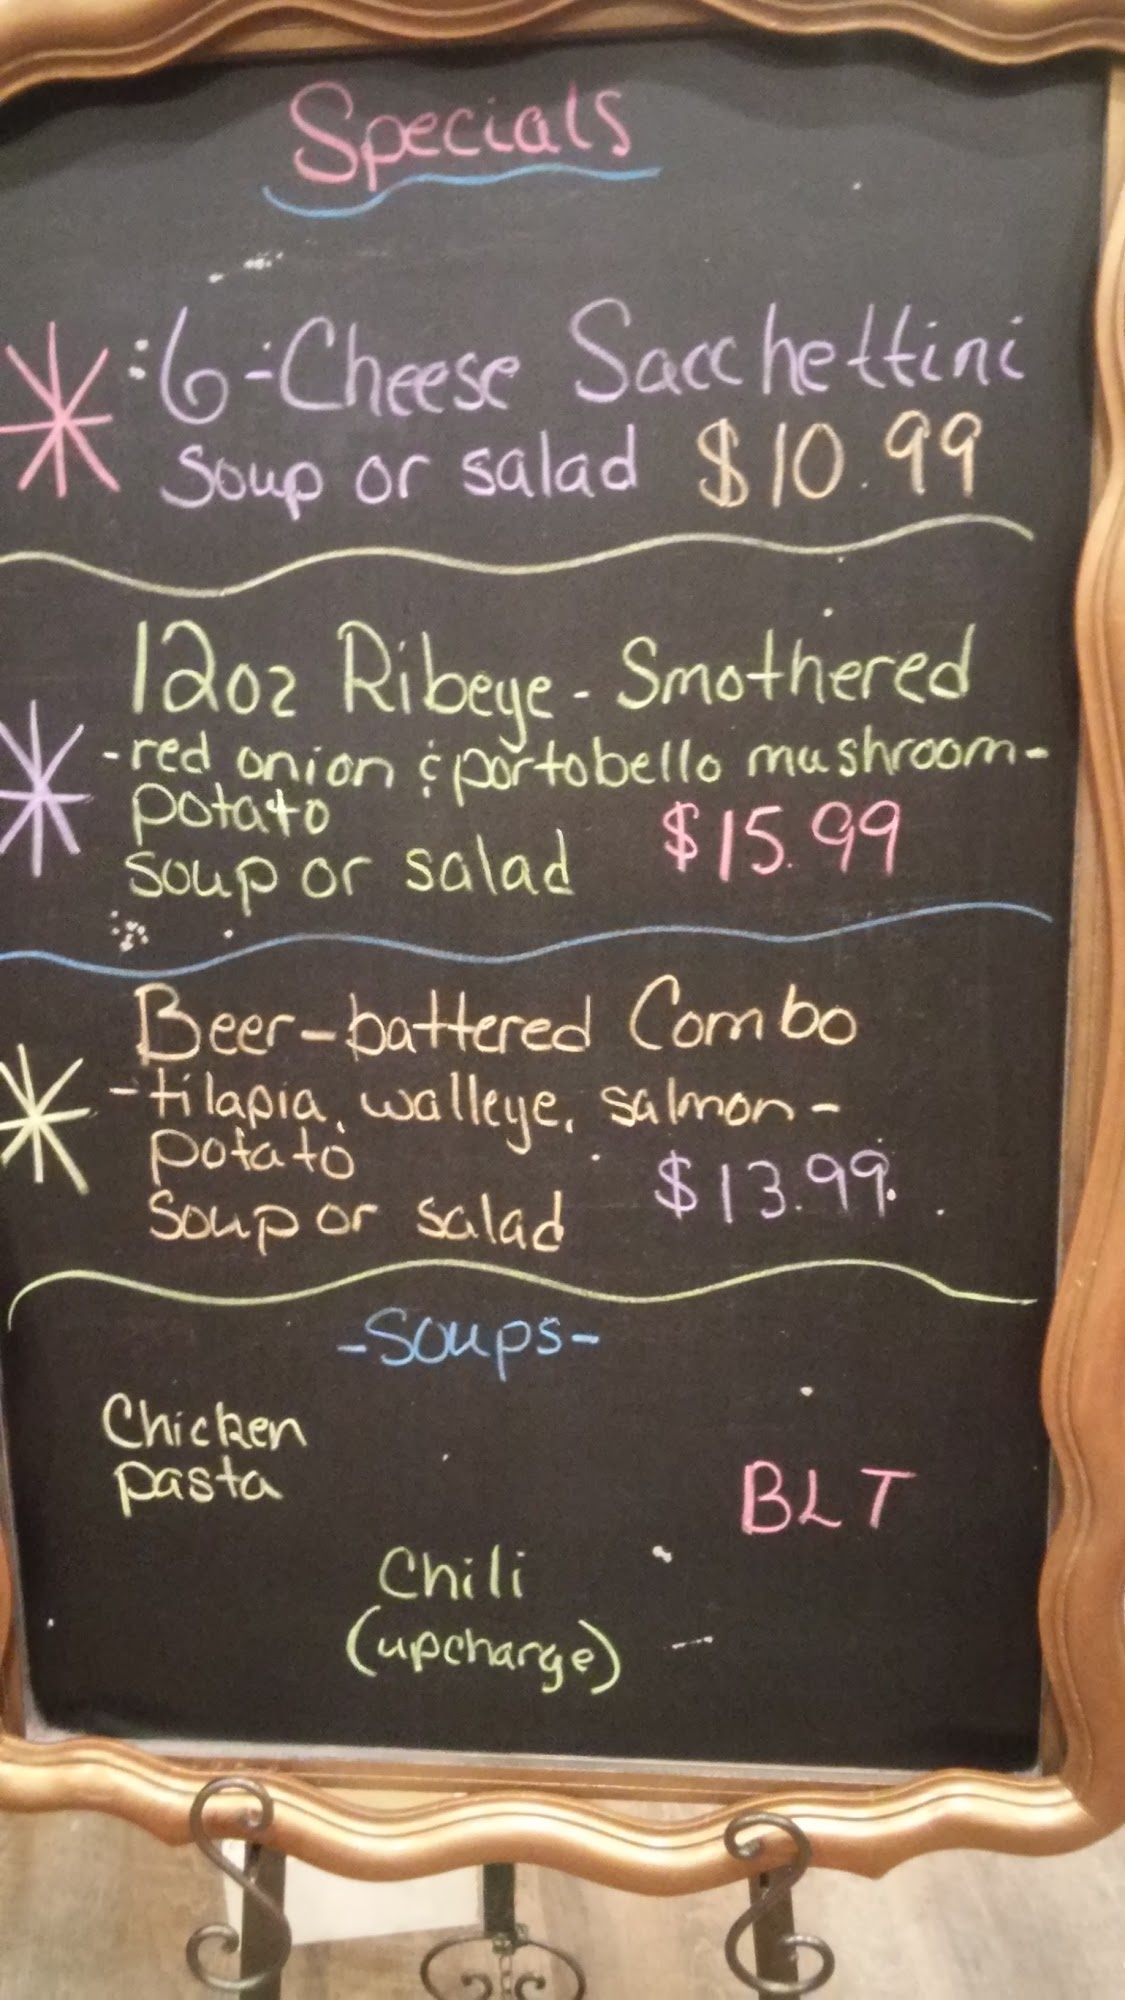 Specials
6-Cheese Sacchettini
soup or salad $10.99
12oz Ribeye - Smothered
-red onion & portobello mushroom-
potato
soup or salad $15.99
Beer-battered Combo
-tilapia, walleye, salmon-
potato
soup or salad $13.99
-Soups-
Chicken
pasta
BLT
Chili
(upcharge)